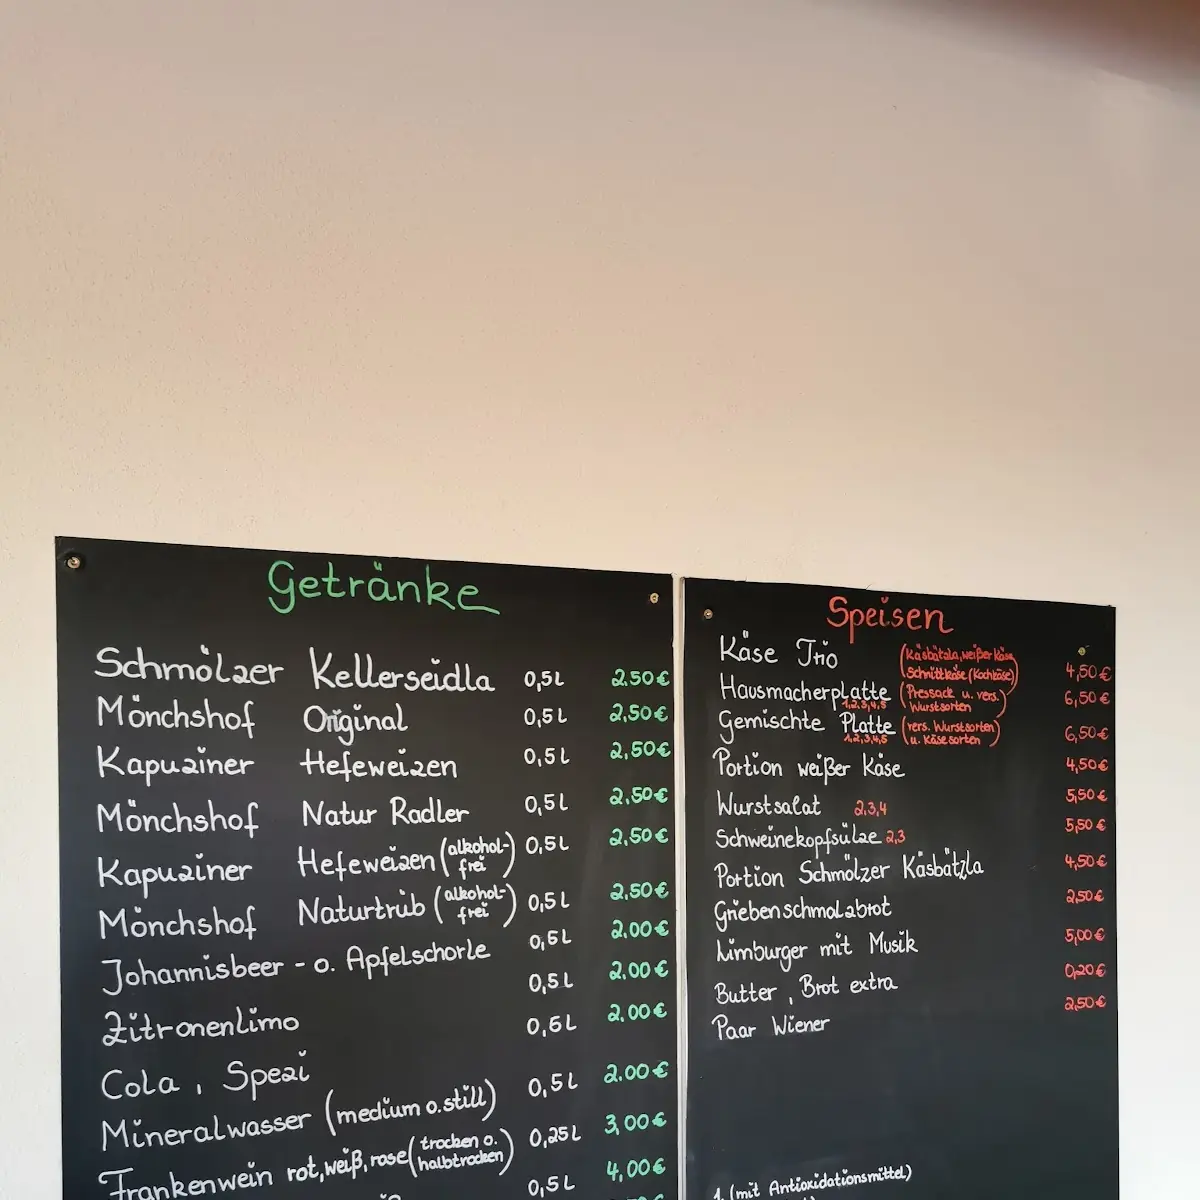 Getränke
Schmölzer Kellerseidla 0,5L 2.50€
Mönchshof Original 0,5L 2,50€
Kapuziner Hefeweizen 0,5L 2,50€
Mönchshof Natur Radler 0,5L 2,50€
Kapuziner Hefeweizen (alkohol-frei) 0,5L 2,50€
Mönchshof Naturtrüb (alkohol-frei) 0,5L 2,50€
Johannisbeer - o. Apfelschorle 0,5L 2.00€
Zitronenlimo 0,5L 2,00€
Cola, Spezi 0,5L 2,00€
Mineralwasser (medium o. still) 0,5L 2.00€
Frankenwein rot, weiß, rose (trocken o. halbtrocken) 0,25L 3,00€
0,5L 4,00€
Speisen
Käse Trio (Käsbätzla, weißer Käse, Schnittkäse (Kochkäse) 4,50€
Hausmacherplatte 1,2,3,4,5 (Pressack u. vers. Wurstsorten) 6,50€
Gemischte Platte 1,2,3,4,5 (vers. Wurstsorten u. Käsesorten) 6,50€
Portion weißer Käse 4,50€
Wurstsalat 2,3,4 5,50€
Schweinekopfsülze 2,3 5,50€
Portion Schmölzer Käsbätzla 4,50€
Griebenschmalzbrot 2,50€
Limburger mit Musik 5,00€
Butter, Brot extra 0,20€
Paar Wiener 2,50€
1. (mit Antioxidationsmittel)